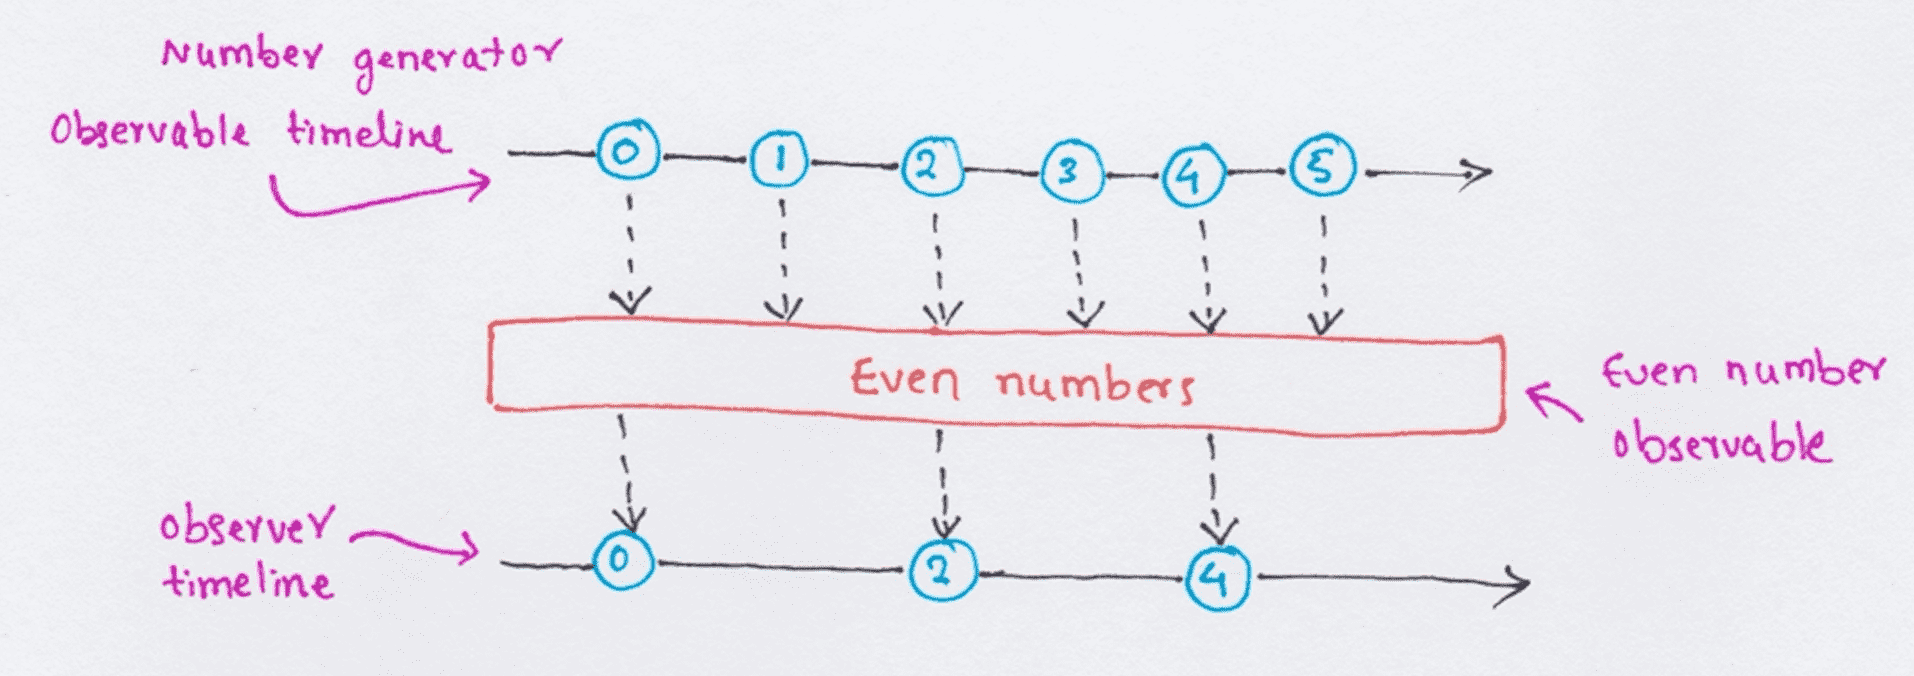 Number generator
Observable timeline
0 1 2 3 4 5
Even numbers
Even number
observable
observer
timeline
0 2 4